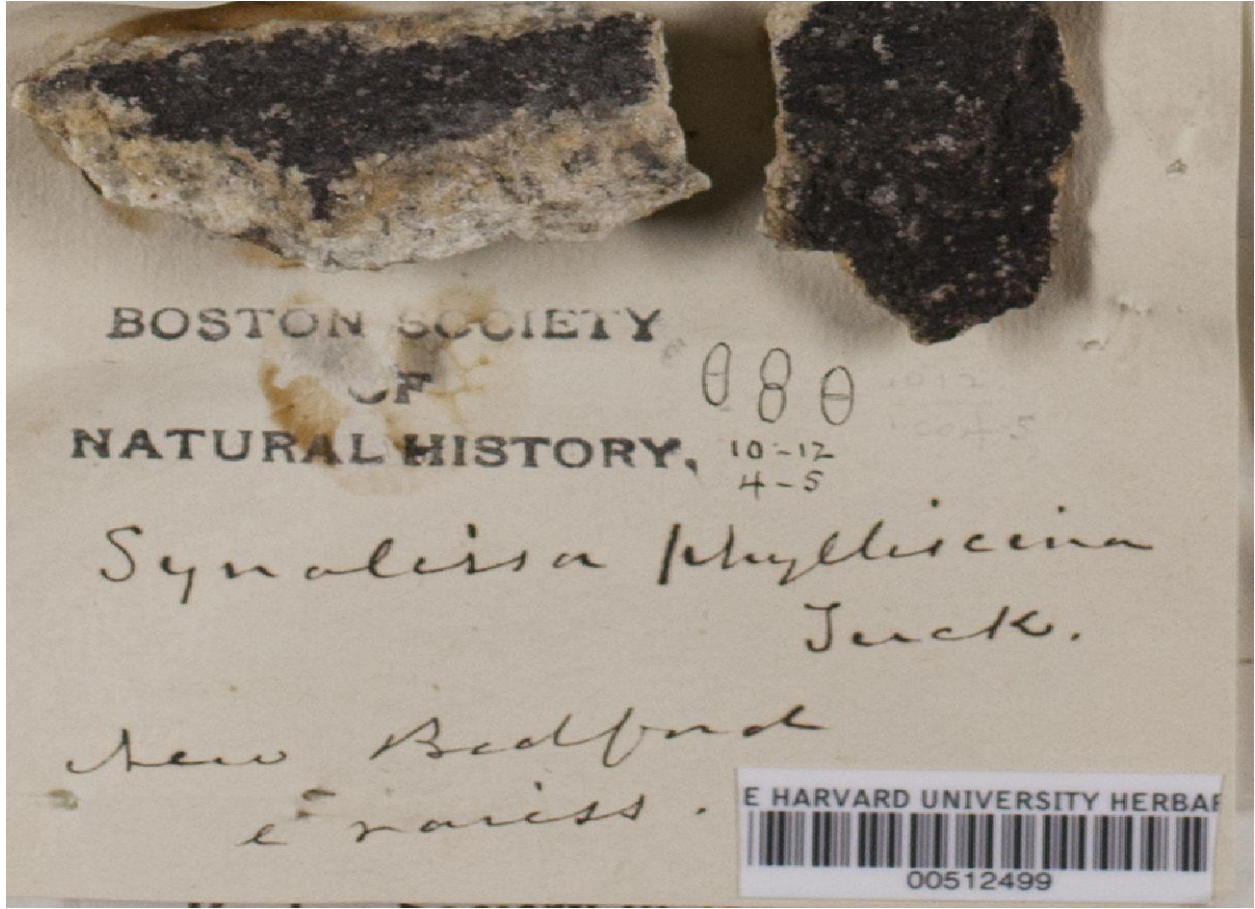 BOSTON SOCIETY
OF
NATURAL HISTORY,
10-12
4-5
Synalissa phylliscina
Tuck.
New Bedford
e rariss.
E HARVARD UNIVERSITY HERBAR
00512499